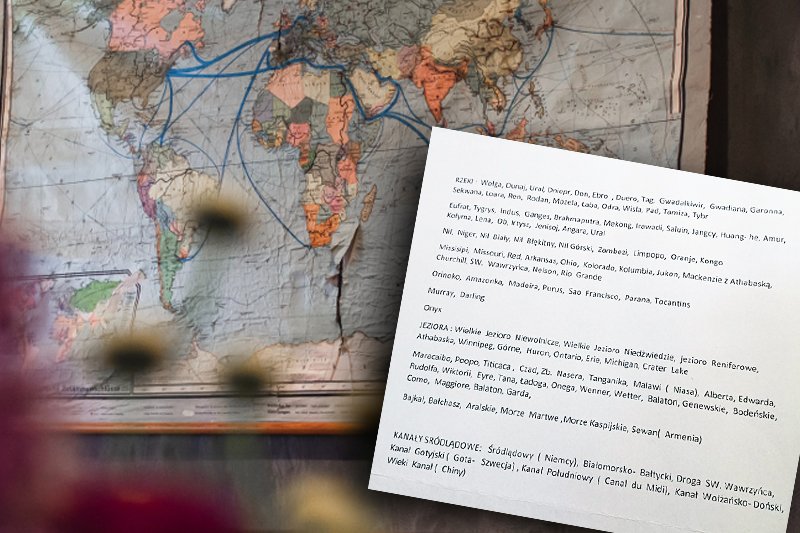 RZEKI : Wołga, Dunaj, Ural, Dniepr, Don, Ebro , Duero, Tag, Gwadalkiwir, Gwadiana, Garonna,
Sekwana, Loara, Ren, Rodan, Mozela, Łaba, Odra, Wisła, Pad, Tamiza, Tybr
Eufrat, Tygrys, Indus, Ganges, Brahmaputra, Mekong, Irawadi, Saluin, Jangcy, Huang- he, Amur,
Kołyma, Lena, Ob, Irtysz, Jenisej, Angara, Ural
Nil, Niger, Nil Biały, Nil Błękitny, Nil Górski, Zambezi, Limpopo, Oranje, Kongo
Missisipi, Missouri, Red, Arkansas, Ohio, Kolorado, Kolumbia, Jukon, Mackenzie z Athabaską,
Churchill, SW. Wawrzyńca, Nelson, Rio Grande
Orinoko, Amazonka, Madeira, Purus, Sao Francisco, Parana, Tocantins
Murray, Darling
Onyx
JEZIORA : Wielkie Jezioro Niewolnicze, Wielkie Jezioro Niedźwiedzie, Jezioro Reniferowe,
Athabaska, Winnipeg, Górne, Huron, Ontario, Erie, Michigan, Crater Lake
Maracaibo, Poopo, Titicaca , Czad, Zb. Nasera, Tanganika, Malawi ( Niasa), Alberta, Edwarda,
Rudolfa, Wiktorii, Eyre, Tana, Ładoga, Onega, Wenner, Wetter, Balaton, Genewskie, Bodeńskie,
Como, Maggiore, Balaton, Garda,
Bajkał, Bałchasz, Aralskie, Morze Martwe ,Morze Kaspijskie, Sewan( Armenia)
KANAŁY SRÓDLĄDOWE: Śródlądowy ( Niemcy), Białomorsko- Bałtycki, Droga SW. Wawrzyńca,
Kanał Gotyjski ( Gota- Szwecja) , Kanał Południowy ( Canal du Midi), Kanał Wołżańsko- Doński,
Wieki Kanał ( Chiny)